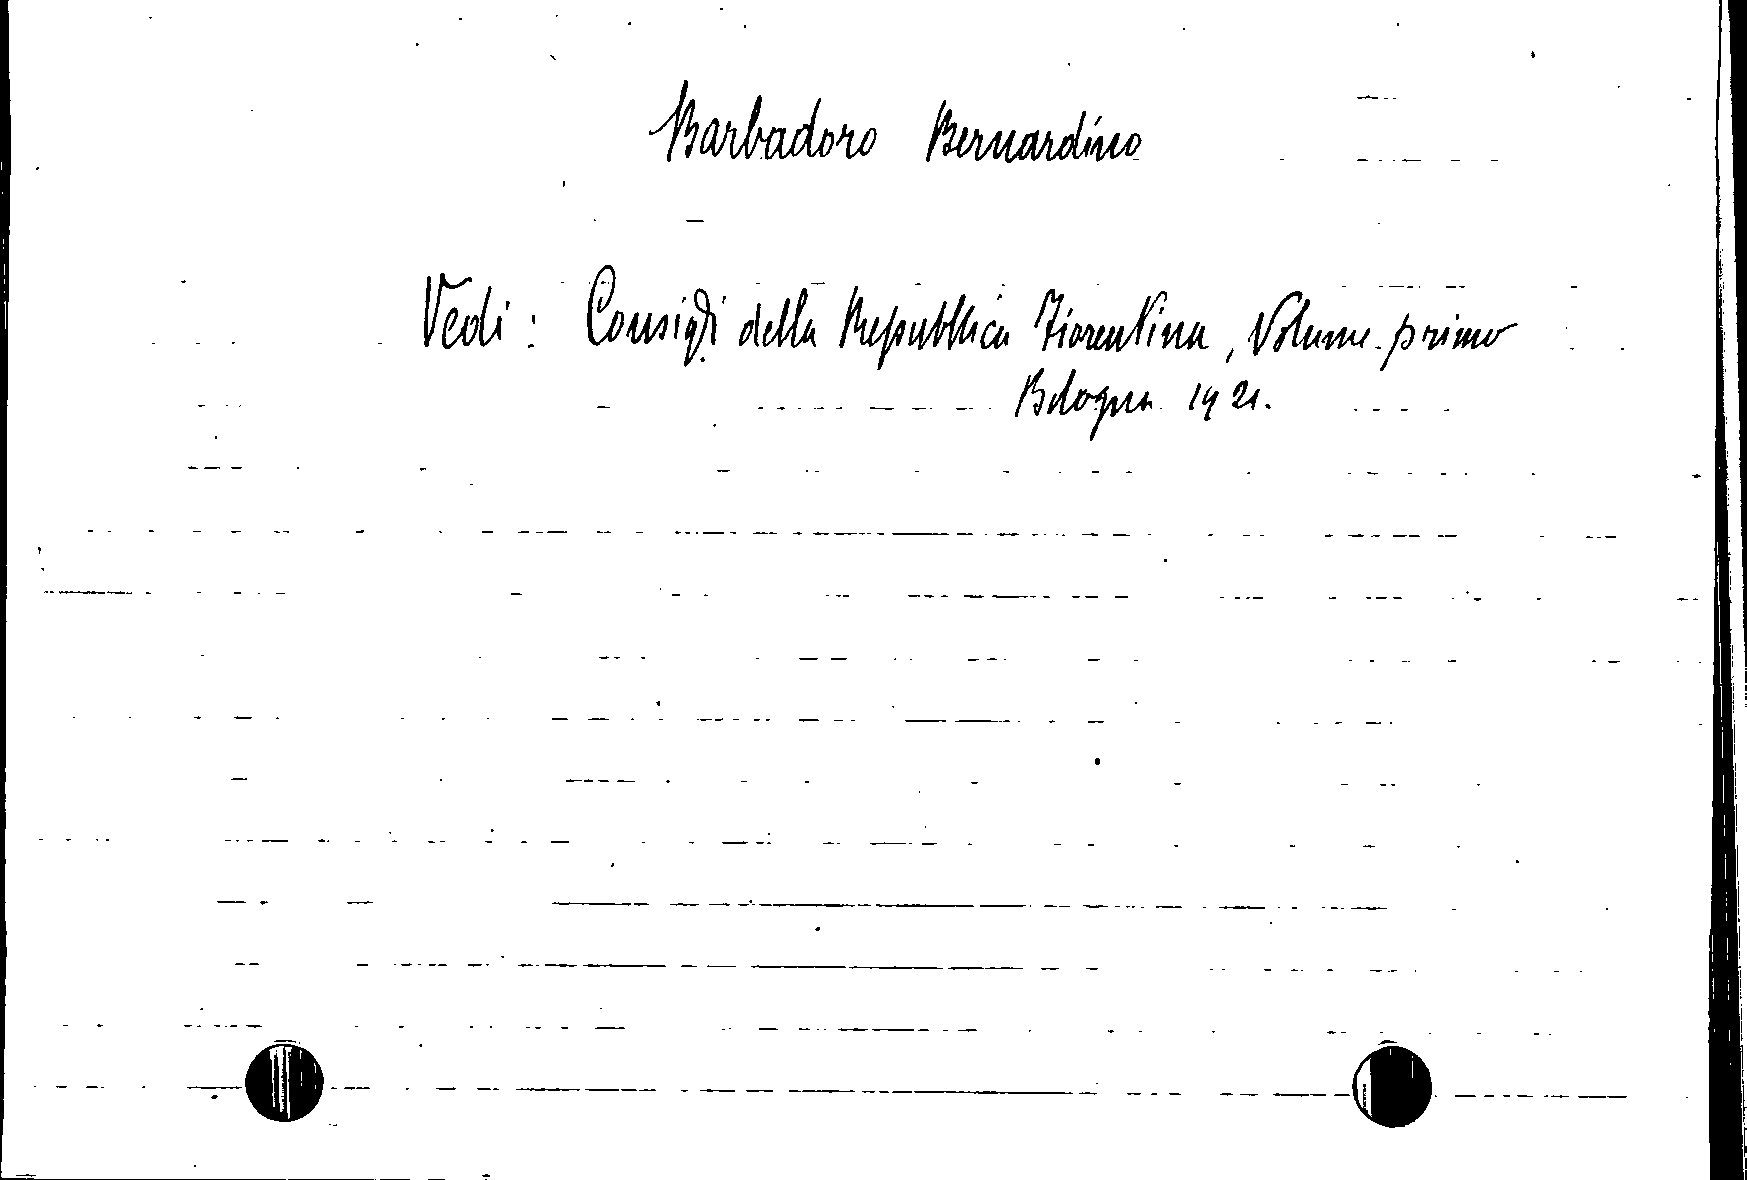 Barbadoro Bernardino
Vedi: Consigli della Repubblica Fiorentina, Volume primo
Bologna 1921.